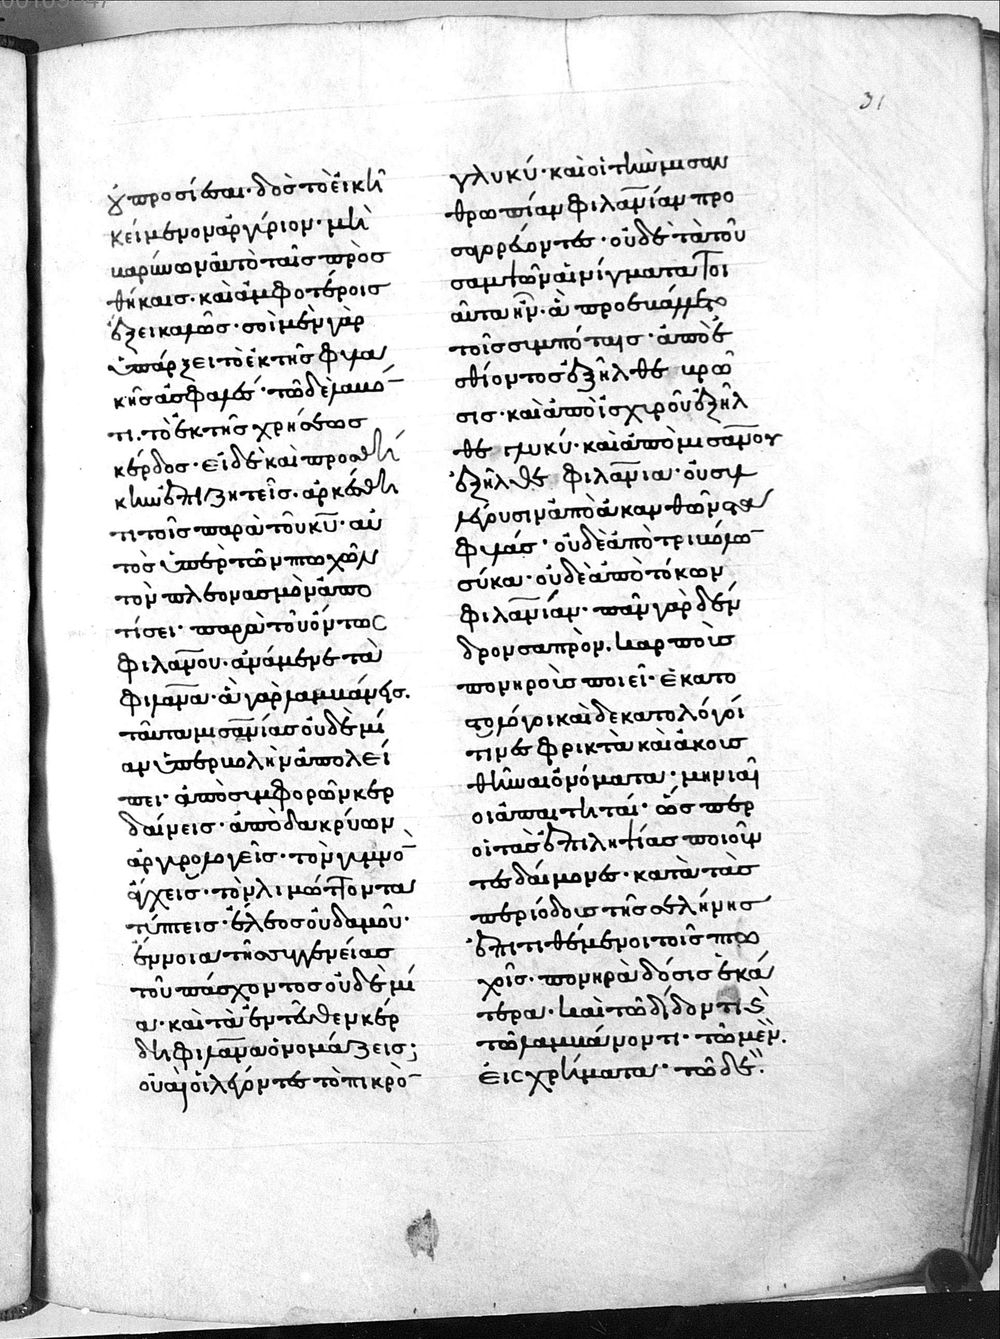 31
οὐ προσίεσαι. δὸς τὸ εἰκῆ
κείμενον ἀργύριον. μὴ
βαρύνων αὐτὸ ταῖς προσ
θήκαις. καὶ ἀμφοτέροις
ἕξει καλῶς. σοὶ μὲν γὰρ
ὑπάρξει τὸ ἐκ τῆς φυλα
κῆς ἀσφαλές. τῶ δὲ λαβό̅
τι. τὸ ἐκ τῆς χρήσεως
κέρδος. εἰ δὲ καὶ προσθή
κην ἐπιζητεῖς. ἀρκέσθη
τι τοῖς παρὰ τοῦ κ̅υ̅. αὐ
τὸς ὑπὲρ τῶν πτωχῶν
τὸν πλεονασμὸν ἀπο
τίσει. παρὰ τοῦ ὄντως
φιλα̅νου. ἀνάμενε τὰ
φιλα̅να. ἃ γὰρ λαμβάνεις.
ταῦτα μισα̅νίας οὐδεμί
αν ὑπερβολὴν ἀπολεί
πει. ἀπὸ συμφορῶν κερ
δαίνεις. ἀπὸ δακρύων
ἀργυρολογεῖς. τὸν γυμνὸ̅
ἄγχεις. τὸν λιμώττοντα
τύπτεις. ἔλεος οὐδαμοῦ.
ἔννοια τῆς συγγενείας
τοῦ πάσχοντος οὐδεμί
α. καὶ τὰ ἐντεῦθεν κέρ
δη φιλα̅να ὀνομάζεις;
οὐαὶ οἱ λέγοντες τὸ πικρὸ̅
γλυκύ. καὶ οἱ τὴν μισαν
θρωπίαν φιλα̅νίαν προ
σαγορεύοντες. οὐδὲ τὰ τοῦ
σαμψῶν αἰνίγματα τοι
αῦτα ἦν. ἃ προεβάλλετο
τοῖς συμπόταις. ἀπὸ ἐ
σθίοντος ἐξῆλθε βρῶ
σις. καὶ ἀπὸ ἰσχυροῦ ἐξῆλ
θε γλυκύ. καὶ ἀπὸ μισα̅νου
ἐξῆλθε φιλα̅νια. οὐ συλ
λέγουσιν ἀπὸ ἀκανθῶν στα
φυλάς. οὐδὲ ἀπὸ τριβόλω̅
σύκα. οὐδὲ ἀπὸ τόκων
φιλα̅νίαν. πᾶν γὰρ δέν
δρον σαπρὸν. καρποὺς
πονηροὺς ποιεῖ. ἑκατο
στολόγοι καὶ δεκατολόγοι
τινες φρικτὰ καὶ ἀκουσ
θῆναι ὀνόματα. μηνιαῖ
οι ἀπαιτηταί. ὥσπερ
οἱ τὰς ἐπιληψίας ποιοῦν
τες δαίμονες. κατὰ τὰς
περιόδους τῆς σελήνης
ἐπιτιθέμενοι τοῖς πτω
χοῖς. πονηρὰ δόσις ἑκα
τέρα. καὶ τῶ διδόντι καὶ
τῶ λαμβάνοντι. τῶ μὲν.
εἰς χρήματα. τῶ δὲ.